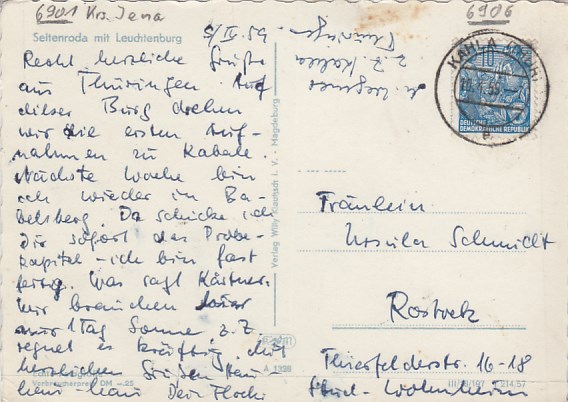 6901 Krs. Jena
6906
Seitenroda mit Leuchtenburg
Recht herzliche Grüße
aus Thüringen. Auf
dieser Burg drehen
wir die ersten Auf-
nahmen zu Kabale.
Nächste Woche bin
ich wieder in Ba-
belsberg. Da schicke ich
Dir sofort das Probe-
kapitel – ich bin fast
fertig. Was sagt
Wir brauchen
nur 1 Tag Sonne z. Z.
regnet es kräftig. Mit
herzlichen Grüßen
Dein
Verbraucherpreis DM –.25
z. Z. Kahla
Thüringen
Verlag Willy Klautzsch i. V. · Magdeburg
A 1328
KAHLA (THÜR)
10
DEUTSCHE
DEMOKRATISCHE REPUBLIK
Fräulein
Ursula Schmidt
Rostock
Thierfelderstr. 16-18
Stud.-Wohnheim